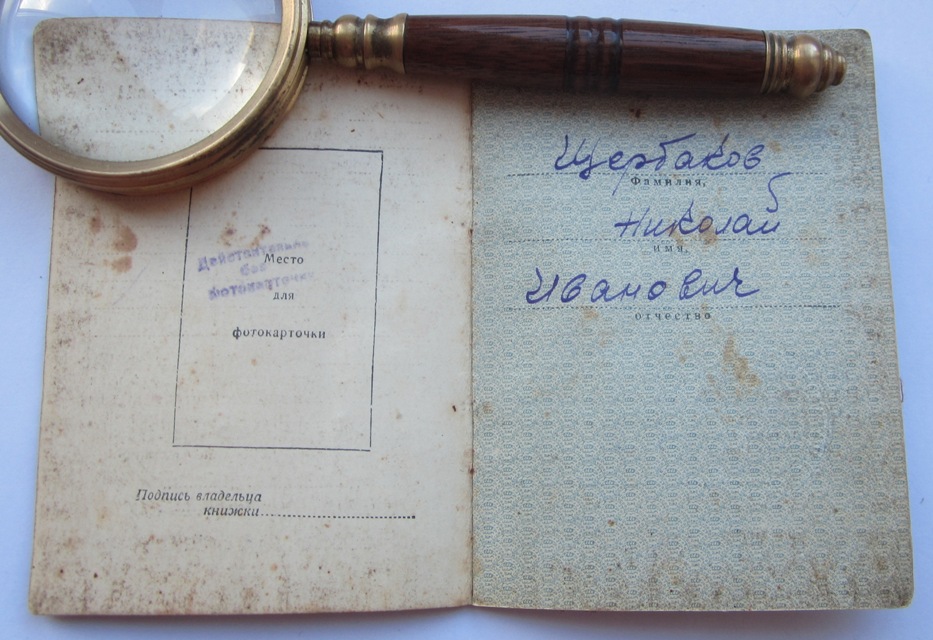 Действительно
без
фотокарточки
Место
для
фотокарточки
Подпись владельца
книжки
Щербаков
Фамилия,
Николай
имя,
Иванович
отчество